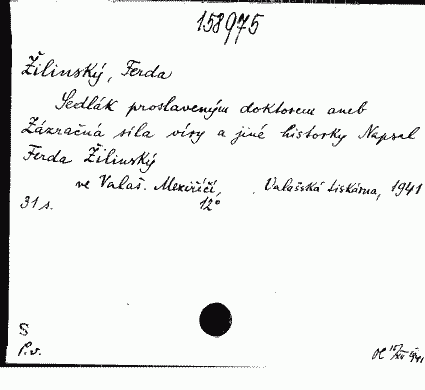 158975
Žilinský, Ferda
Sedlák proslaveným doktorem aneb
Zázračná síla víry a jiné historky Napsal
Ferda Žilinský
ve Valaš. Meziříčí, Valašská tiskárna, 1941
31 s. 12°
S
P.v.